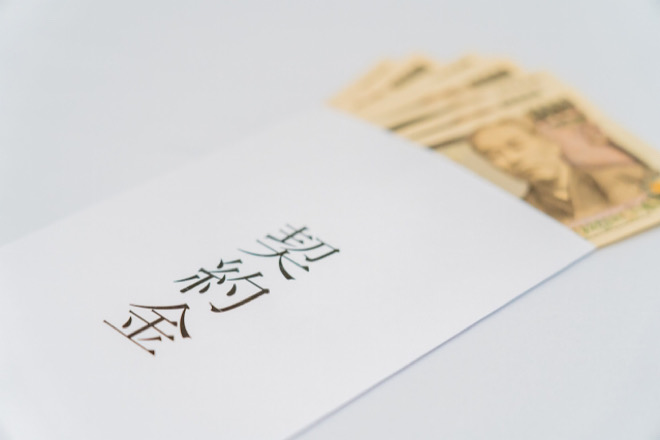 契約金